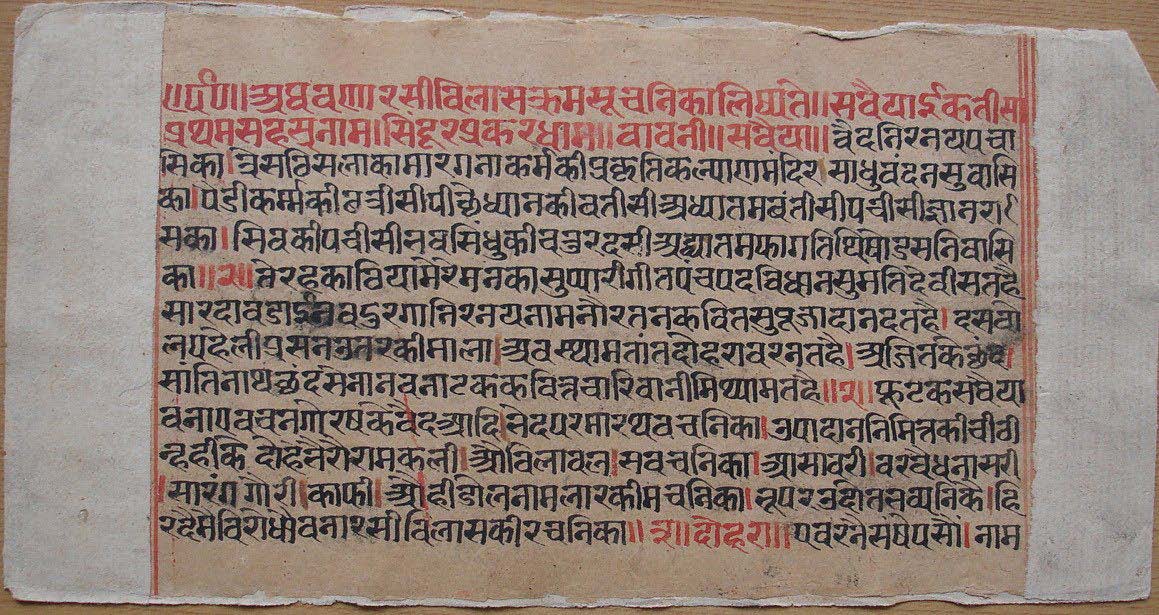 ॥र्द०॥ अथ वणारसीविलासक्रमसूचनिका लिख्यते॥ सवैया ईकतीसा
प्रथमसहस्रनाम। सिंदूरप्रकरधाम॥ बावनी॥ सवैया॥ वेदनिरनयपचा
सिका। त्रिसठिसलाकामारगनाकर्मकीप्रकृतिकल्याणमंदिर साधुवंदनसुवासि
का। पैडीकर्म्मकीछत्रीसीपीछैध्यानकीबतीसीअध्यातमबंतीसीपचीसीज्ञानरा
सका। सिवकीपचीसीभवसिंधुकीचतुरदसीअध्यातमफागतिथिषोडसनिवासि
का॥१॥ तेरहकाठियामेरेमनकासुप्यारीगीतपंचपदविधानसुमतिदेवीसतहै
सारदाबडाईनवदुरगानिरनयनामनौरतनकवितसुपूजादानदतहै। दसबो
लपहेलीप्रसनउतरकीमाला। अवस्थामतांतदोहराबरनतहै। अजितकेछंद।
सांतिनाथछंदसेनानवनाटककवित्तचारिबानीमिथ्यामतहै॥२॥ फुटकसवैया
बनाएवचनगोरषकेवैदआदिभेदपरमारथवचनिका। उपादाननिमित्तकीचीठी
न्हहीकेदोहेभैरोरामकली। औबिलावल। सवचनिका। आसावरी। बरवैधनासरी
।सारंगगौरी। काफी। औहींडोलनामलारकीमचनिका। भूपरउदोतभव्यनिके। हि
रदैमैविरोधौबनारसीविलासकीरचनिका॥३॥ दोहरा॥ एबरनैसंषेपसौं। नाम